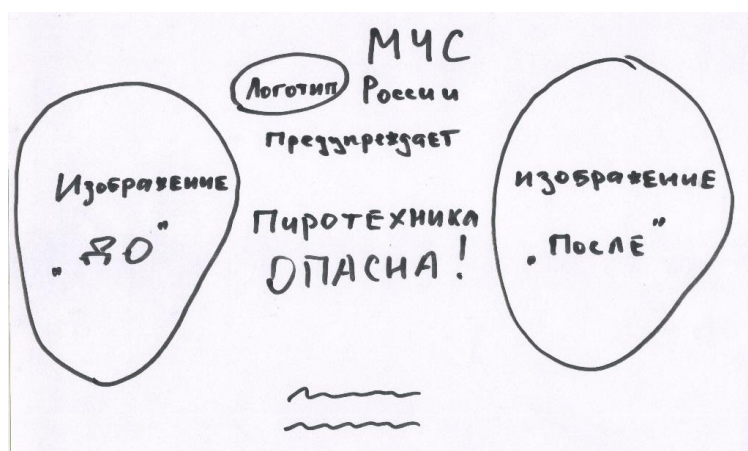 МЧС
Логотип России
Предупреждает
Изображение
„ДО”
Пиротехника
ОПАСНА!
изображение
„После”